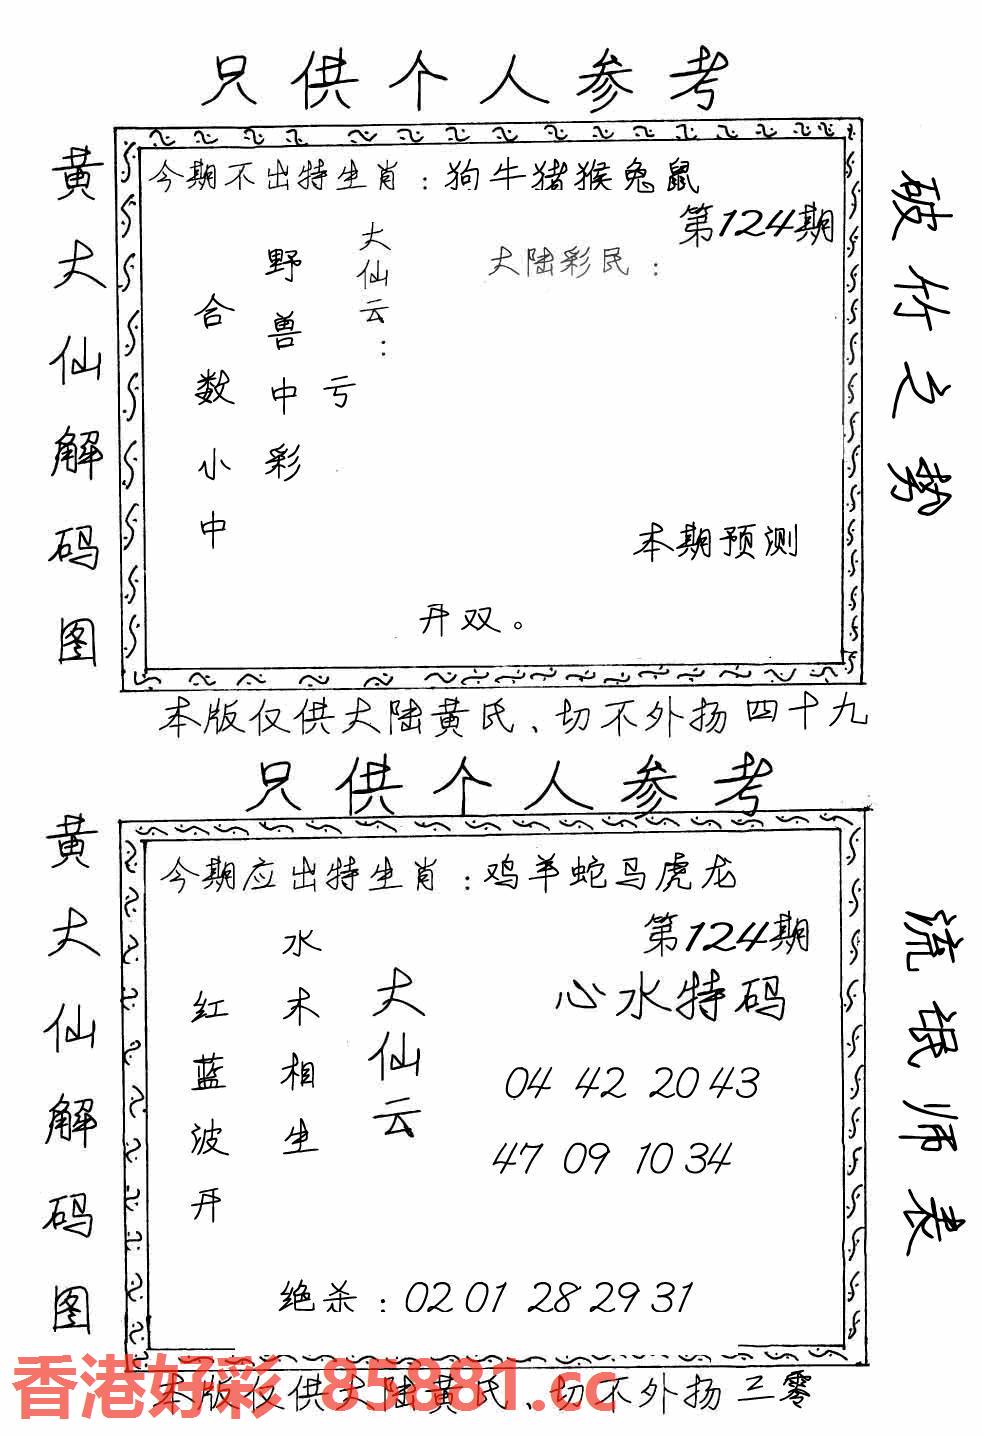 只供个人参考
黄大仙解码图
今期不出特生肖：狗牛猪猴兔鼠
第124期
大陆彩民：
大仙云：
亏
野兽中彩
合数小中
本期预测
开双。
破竹之势
本版仅供大陆黄氏、切不外扬四十九
只供个人参考
黄大仙解码图
今期应出特生肖：鸡羊蛇马虎龙
第124期
心水特码
04 42 20 43
47 09 10 34
大仙云
水木相生
红蓝波开
绝杀：02 01 28 29 31
流氓师表
本版仅供大陆黄氏、切不外扬三零
香港好彩 85881.cc